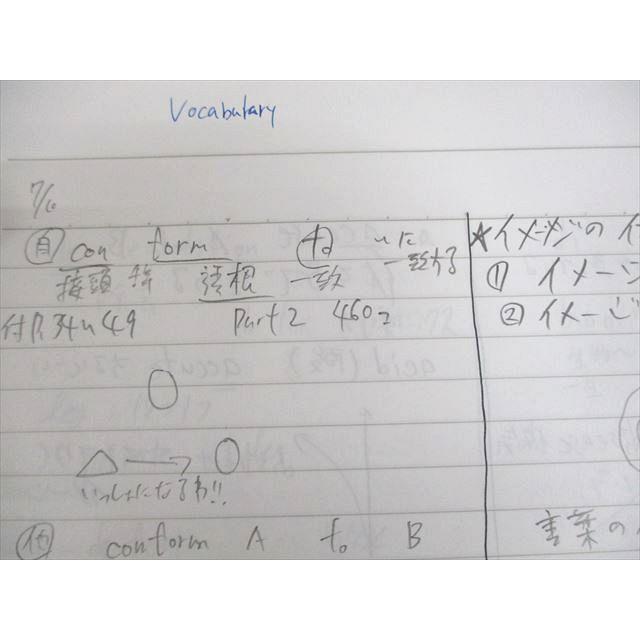 Vocabulary
7/6
㊀ con form ㊉ にに一致する
接頭辞 語根 一致
付P.34~49 Part2 460コ
△ → ○
いっしょになるわ!!
㊁ conform A to B
★イメージの
① イメージ
② イメージ
言葉の